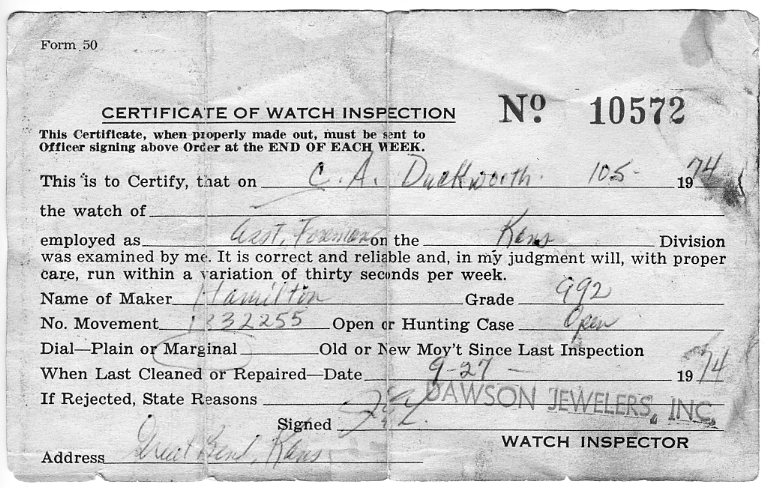 Form 50
CERTIFICATE OF WATCH INSPECTION Nº 10572
This Certificate, when properly made out, must be sent to
Officer signing above Order at the END OF EACH WEEK.
This is to Certify, that on C. A. Duckworth. 105- 1974
the watch of
employed as Asst. Foreman on the Kans Division
was examined by me. It is correct and reliable and, in my judgment will, with proper
care, run within a variation of thirty seconds per week.
Name of Maker Hamilton Grade 992
No. Movement 1332255 Open or Hunting Case Open
Dial—Plain or Marginal Old or New Mov't Since Last Inspection
When Last Cleaned or Repaired—Date 9-27- 1974
If Rejected, State Reasons DAWSON JEWELERS, INC.
Signed
WATCH INSPECTOR
Address Great Bend, Kans